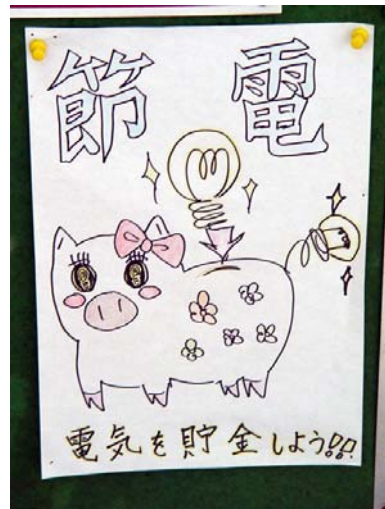 節電
電気を貯金しよう!!!